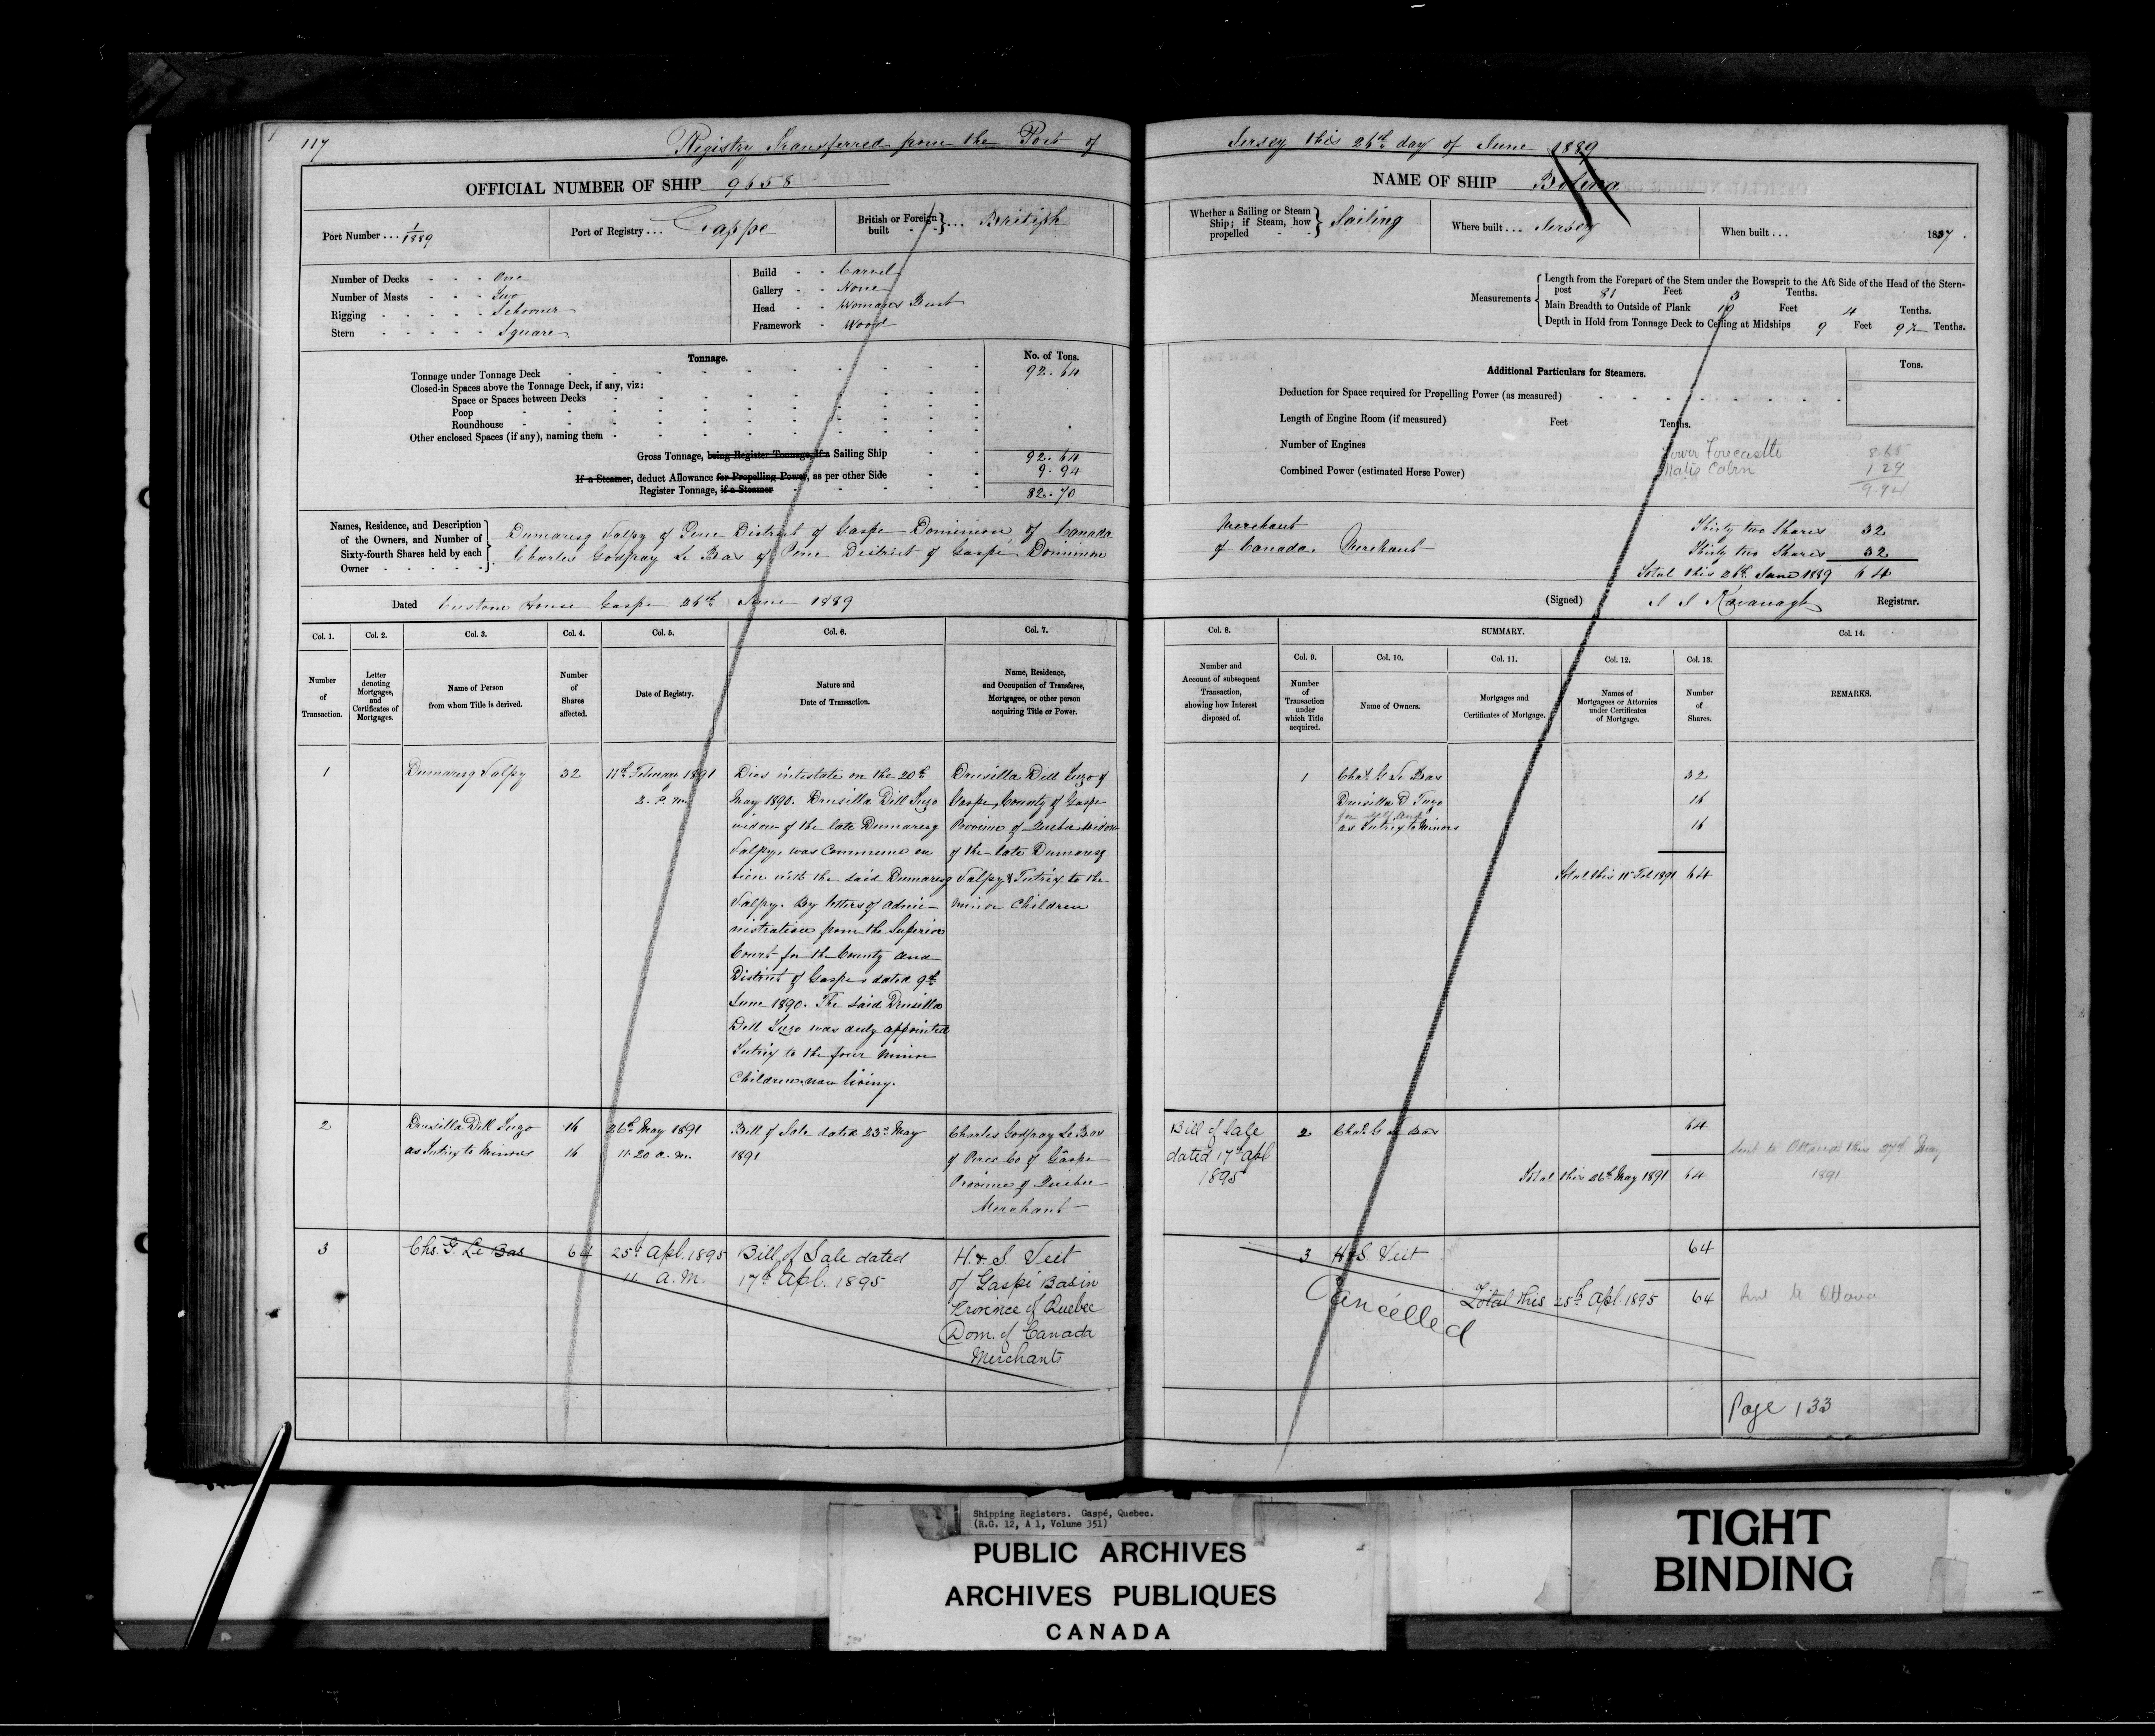 117
Registry Transferred from the Port of Jersey this 26th day of June 1889
OFFICIAL NUMBER OF SHIP 9658
NAME OF SHIP Bolina
Port Number . . . 1/1889
Port of Registry . . . Gaspé
British or Foreign built } . . . British
Whether a Sailing or Steam Ship; if Steam, how propelled } Sailing
Where built . . . Jersey
When built . . . 1837.
Number of Decks - - - One
Number of Masts - - - Two
Rigging - - - - - Schooner
Stern - - - - - Square
Build - - Carvel
Gallery - - None
Head - - Womans Bust
Framework - Wood
Measurements { Length from the Forepart of the Stem under the Bowsprit to the Aft Side of the Head of the Stern-
post 81 Feet 3 Tenths.
Main Breadth to Outside of Plank 19 Feet 4 Tenths.
Depth in Hold from Tonnage Deck to Ceiling at Midships 9 Feet 92 Tenths.
Tonnage.
No. of Tons.
Tonnage under Tonnage Deck 92.64
Closed-in Spaces above the Tonnage Deck, if any, viz:
Space or Spaces between Decks
Poop
Roundhouse
Other enclosed Spaces (if any), naming them
Gross Tonnage, being Register Tonnage, if a Sailing Ship 92.64
If a Steamer, deduct Allowance for Propelling Power, as per other Side 9.94
Register Tonnage, if a Steamer 82.70
Additional Particulars for Steamers.
Tons.
Deduction for Space required for Propelling Power (as measured)
Length of Engine Room (if measured) Feet Tenths.
Number of Engines
Combined Power (estimated Horse Power)
Lower Forecastle 8.65
Mates Cabin 1.29
9.94
Names, Residence, and Description of the Owners, and Number of Sixty-fourth Shares held by each Owner
Dumaresq Valpy of Perce District of Gaspe Dominion of Canada Merchant Thirty two Shares 32
Charles Godfray Le Bas of Perce District of Gaspe Dominion of Canada. Merchant Thirty two Shares 32
Total this 26th June 1889 64
Dated Custom House Gaspe 26th June 1889
(Signed) Kavanagh Registrar.
Col. 1.
Col. 2.
Col. 3.
Col. 4.
Col. 5.
Col. 6.
Col. 7.
Col. 8.
SUMMARY.
Col. 9.
Col. 10.
Col. 11.
Col. 12.
Col. 13.
Col. 14.
Number of Transaction.
Letter denoting Mortgages, and Certificates of Mortgages.
Name of Person from whom Title is derived.
Number of Shares affected.
Date of Registry.
Nature and Date of Transaction.
Name, Residence, and Occupation of Transferee, Mortgagee, or other person acquiring Title or Power.
Number and Account of subsequent Transaction, showing how Interest disposed of.
Number of Transaction under which Title acquired.
Name of Owners.
Mortgages and Certificates of Mortgage.
Names of Mortgagees or Attornies under Certificates of Mortgage.
Number of Shares.
REMARKS.
1
Dumaresq Valpy
32
11th February 1891
2. P.m.
Dies intestate on the 20th
May 1890. Drusilla Dill Tuzo
widow of the late Dumaresq
Valpy, was Commune en
bien with the said Dumaresq
Valpy. By letters of admi-
nistration from the Superior
Court for the County and
District of Gaspe dated 9th
June 1890. The said Drusilla
Dill Tuzo was duly appointed
Tutrix to the four minor
Children now living.
Drusilla Dill Tuzo of
Gaspe, County of Gaspe
Province of Quebec Widow
of the late Dumaresq
Valpy & Tutrix to the
minor Children
1
Chas. G Le Bas 32
Drusilla D Tuzo 16
for self and
as Tutrix to Minors 16
Total this 11th Feb 1891 64
2
Drusilla Dill Tuzo 16
as Tutrix to Minors 16
26th May 1891
11.20 a.m.
Bill of Sale dated 23rd May
1891
Charles Godfray Le Bas
of Perce Co of Gaspe
Province of Quebec
Merchant
Bill of Sale
dated 17th Apl
1895
2
Chas. G Le Bas 64
Total this 26th May 1891 64
Sent to Ottawa this 27th May
1891
3
Chs. G. Le Bas
64
25th Apl. 1895
11 a.m.
Bill of Sale dated
17th Apl. 1895
H. & S. Veit
of Gaspé Basin
Province of Quebec
Dom. of Canada
Merchants
3
H & S. Veit 64
Total this 25th Apl. 1895 64
Cancelled
Sent to Ottawa
Page 133
Shipping Registers. Gaspé, Quebec.
(R.G. 12, A 1, Volume 351)
PUBLIC ARCHIVES
ARCHIVES PUBLIQUES
CANADA
TIGHT
BINDING